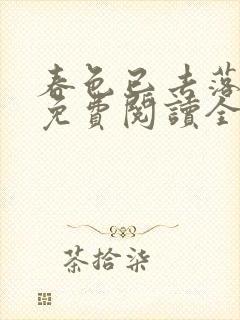 春色已去落
免費閱讀全
茶拾柒